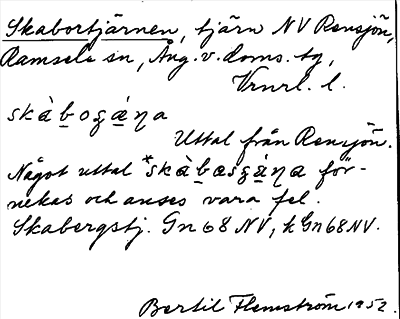 Skabortjärnen, tjärn NV Rensjön,
Ramsele sn, Ång. v. doms. tg,
Vrnrl. l.
skàbogǻŋa
Uttal från Rensjön.
Något uttal *skàbæsgǻŋa för-
nekas och anses vara fel.
Skabergstj. Gn 68 NV, k Gn 68 NV.
Bertil Flemström 1952.